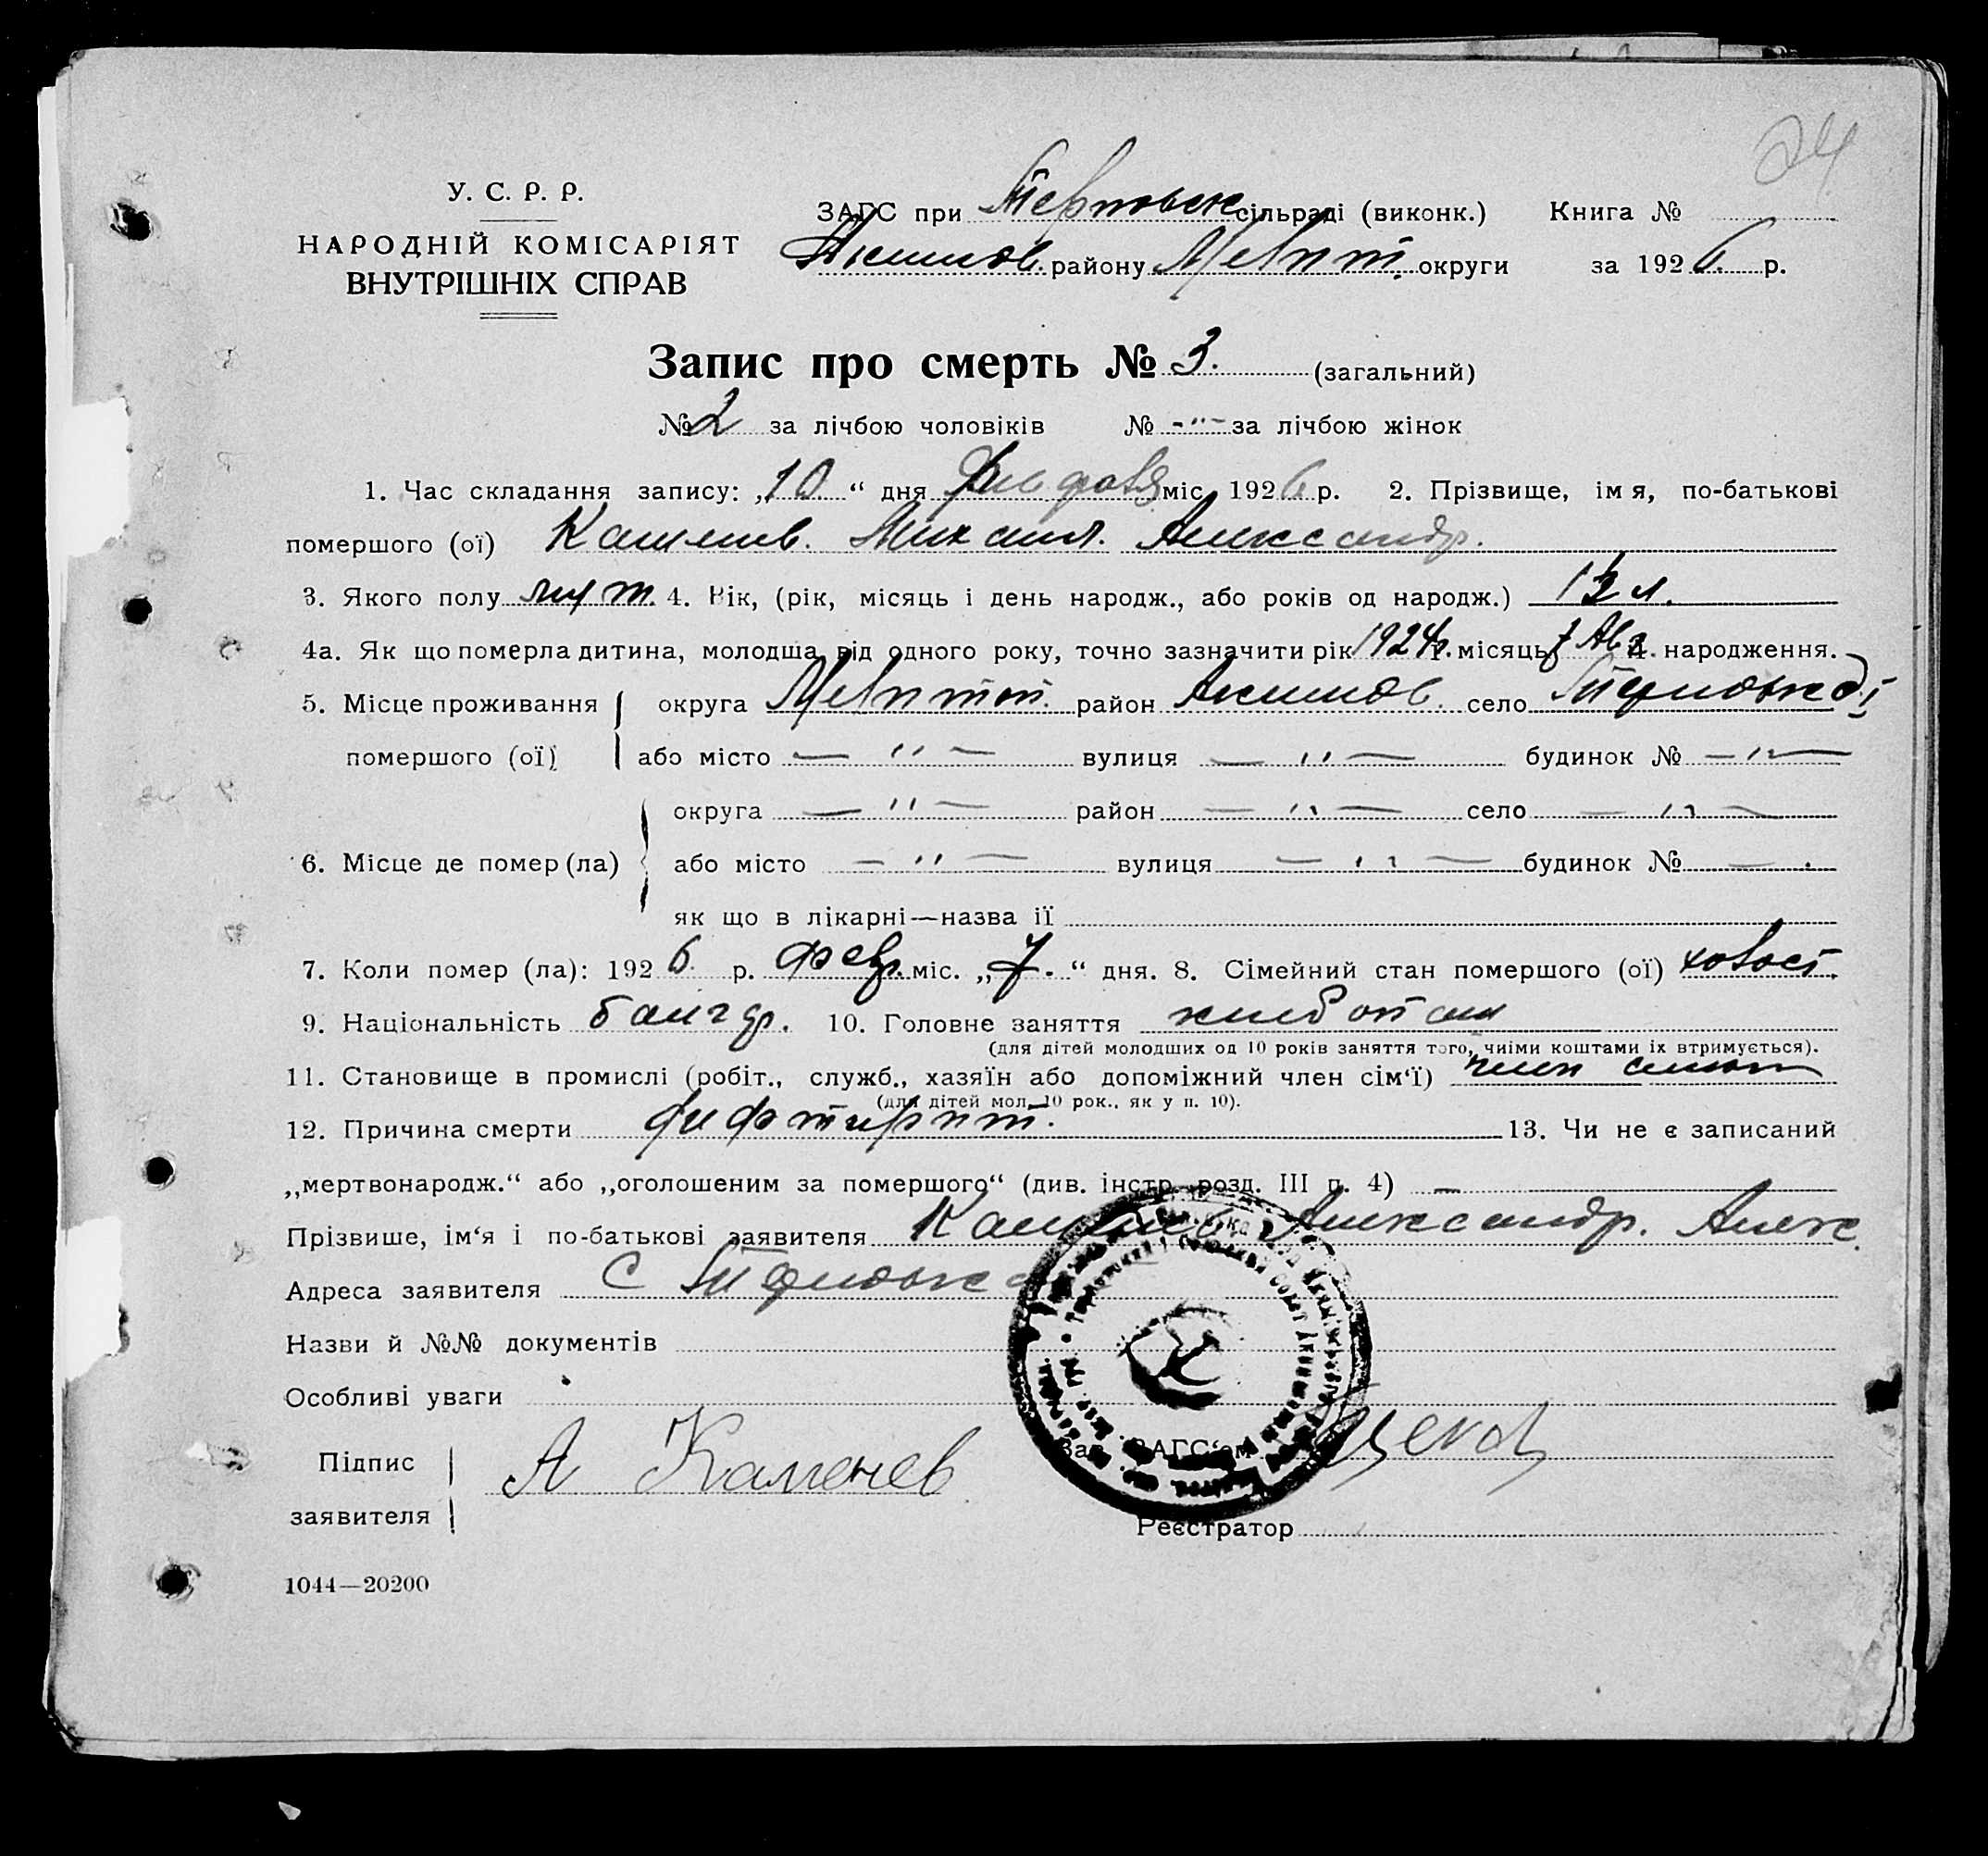 24
У. С. Р. Р.
НАРОДНІЙ КОМІСАРІЯТ
ВНУТРІШНІХ СПРАВ
ЗАГС при Терповск сільраді (виконк.) Книга №
Акимов. району Мелит. округи за 1926. р.
Запис про смерть № 3. (загальний)
№ 2 за лічбою чоловіків № -"- за лічбою жінок
1. Час складання запису: „10" дня міс. 1926 р. 2. Прізвище, ім я, по-батькові
помершого (ої) Каменев. Михаил. Александр.
3. Якого полу муж. 4. Вік, (рік, місяць і день народж., або років од народж.) 1½ л.
4а. Як що померла дитина, молодша від одного року, точно зазначити рік 1924 г. місяць 7 Авг. народження.
5. Місце проживання округа Мелитоп. район Акимов. село
помершого (ої) або місто — " — вулиця — " — будинок № — " —
округа — " — район — " — село — " —
6. Місце де помер (ла) або місто — " — вулиця — " — будинок № — .
як що в лікарні—назва її
7. Коли помер (ла): 1926 р. февр. міс. „7." дня. 8. Сімейний стан помершого (ої) холост.
9. Національність болгар. 10. Головне заняття хлебопаш
(для дітей молодших од 10 років заняття того, чиїми коштами їх втримується).
11. Становище в промислі (робіт., служб., хазяїн або допоміжний член сім'ї) член семьи
(для дітей мол. 10 рок., як у п. 10).
12. Причина смерти дифтирит. 13. Чи не є записаний
„мертвонародж." або „оголошеним за помершого" (див. інстр. розд. III п. 4) —
Прізвише, ім'я і по-батькові заявителя Каменев Александр. Алекс.
Адреса заявителя С
Назви й №№ документів
Особливі уваги
Підпис
заявителя
А Каменев
Зав. ЗАГС'ом
Реєстратор
1044—20200